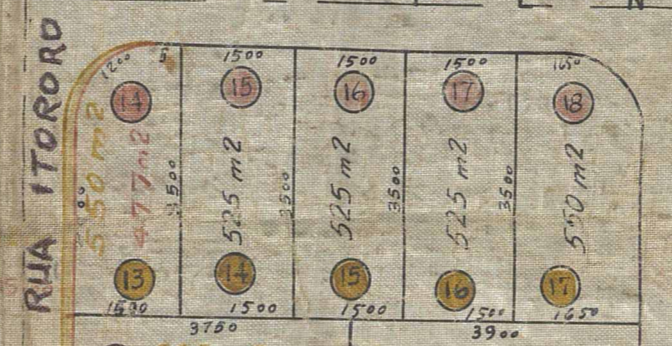 RUA ITORORO
1200
5
1500
1500
1500
1650
14
15
16
17
18
550 m2
477 m2
525 m2
525 m2
525 m2
550 m2
3500
3500
3500
13
14
15
16
17
1500
1500
1500
1650
3750
3900